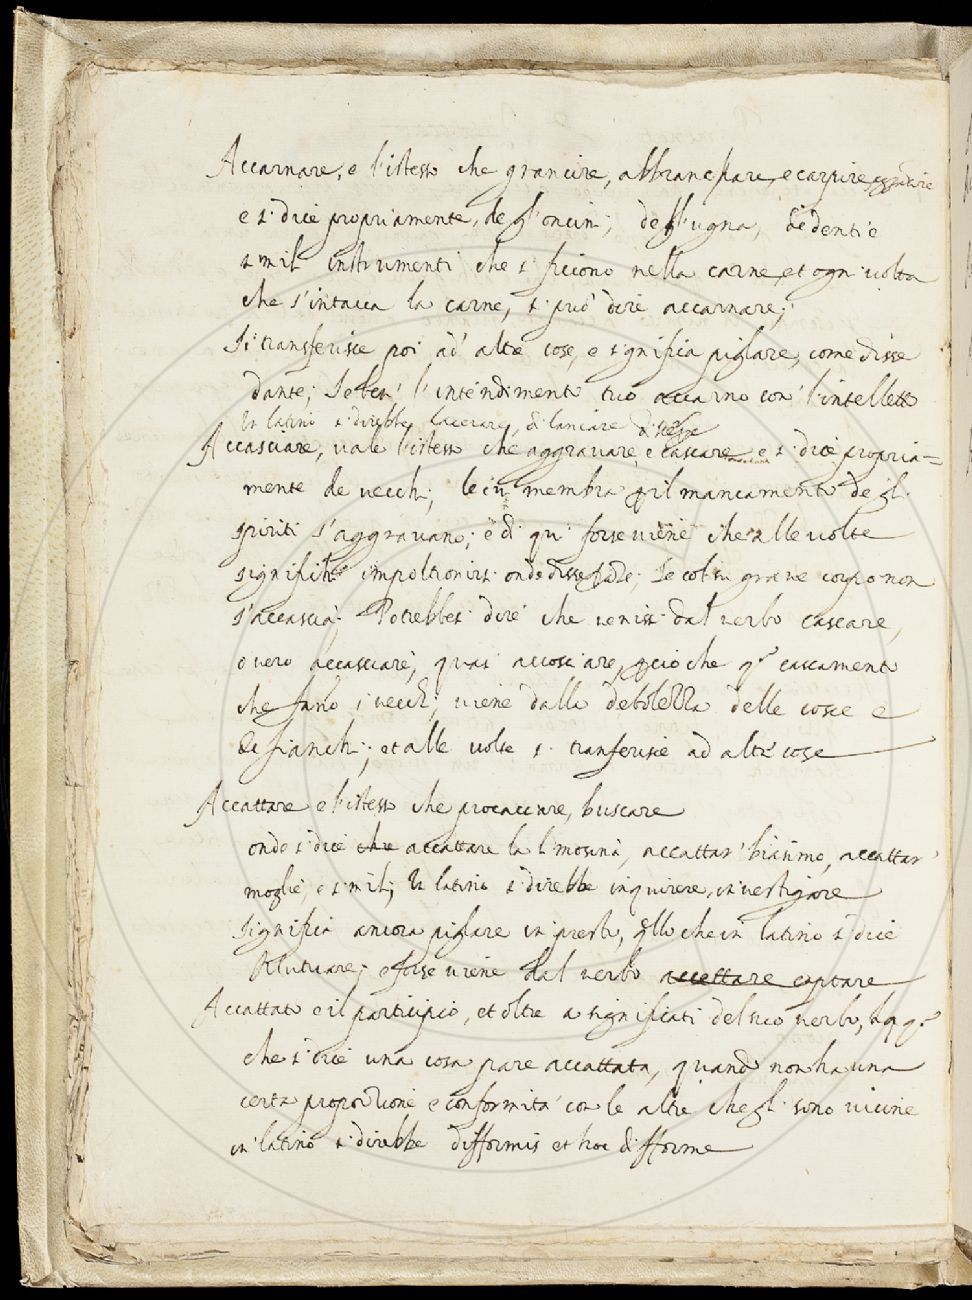 Accarnare, e l'istesso che grancire, abbrancpare, e carpire
e si dice propriamente, de gl'oncini; dell'ugna, de denti e
simili instrumenti che si ficcono nella carne, et ogni volta
che s'intacca la carne, si può dire accarnare;
Si transferisce poi ad' altre cose, e significa pigliare, come disse
dante; Se ben' l'intendimento tuo accarno con' l'intelletto
In latino si direbbe lacerare, di laniare
Accasciare, vale l'istesso che aggravare e cascare e si dice propria=
mente de vecchi; le cui membra p il mancamento de gl.
spiriti s'aggravano; e di qui forse viene che alle volte
significhi impoltronirsi onde disse Dante; Se col suo grave corpo non
s'accascia; Potrebbesi dire che venissi dal verbo cascare,
overo accasciare, quasi accosciare, pcio che q.o cascamento
che fano i vecchi, viene dalla debolezza delle cosce e
de fianchi; et alle volte si tranferisce ad altre cose
Accattare e l'istesso che procacciare, buscare
onde si dice che accattare la limosina, accattar' biasimo, accattar'
moglie, e simili; In latino si direbbe inquirere, investigare
Significa ancora pigliare in presto, qllo che in latino si dice
Mutuare; e forse viene dal verbo accettare captare
Accattato e il participio, et oltre a significati del suo verbo, ha q.o
che si dice una cosa pare accattata, quando non ha una
certa proporzione e conformità con le altre che gli sono vicine
in latino si direbbe difformis et hoc difforme